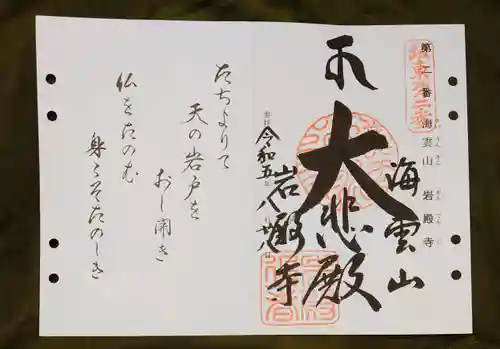 第二番 海雲山 岩殿寺
坂東第二番
海雲山
大悲殿
岩殿寺
令和五年八月廿八日
たちよりて
天の岩戸を
おし開き
仏をたのむ
身こそたのしき